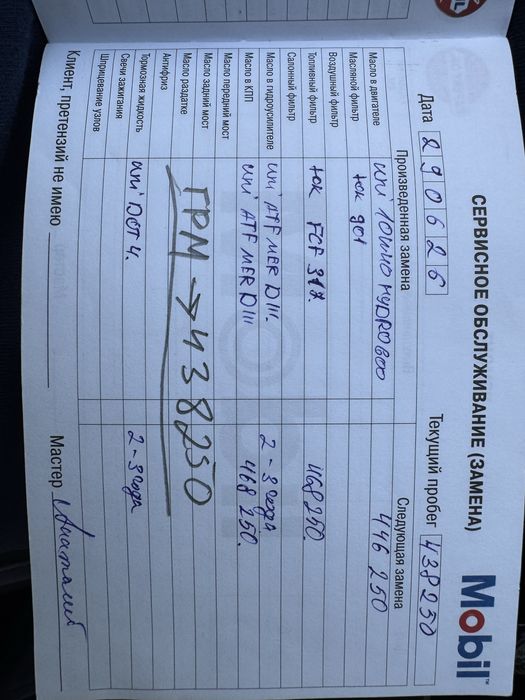 СЕРВИСНОЕ ОБСЛУЖИВАНИЕ (ЗАМЕНА)
Mobil™
Дата 290626 Текущий пробег 438250
Произведенная замена Следующая замена
Масло в двигателе uni 10W40 HYDRO 800 446 250
Масляной фильтр ток 901
Воздушный фильтр
Топливный фильтр ток FCF 318. 468250.
Салонный фильтр
Масло в гидроусилителе uni ATF MER D III. 2-3 года
Масло в КПП uni ATF MER D III 468 250.
Масло передний мост
Масло задний мост ГРМ → 438250
Масло раздатке
Антифриз
Тормозная жидкость uni DOT 4. 2-3 года
Свечи зажигания
Шприцевание узлов
Клиент, претензий не имею Мастер Анатолий